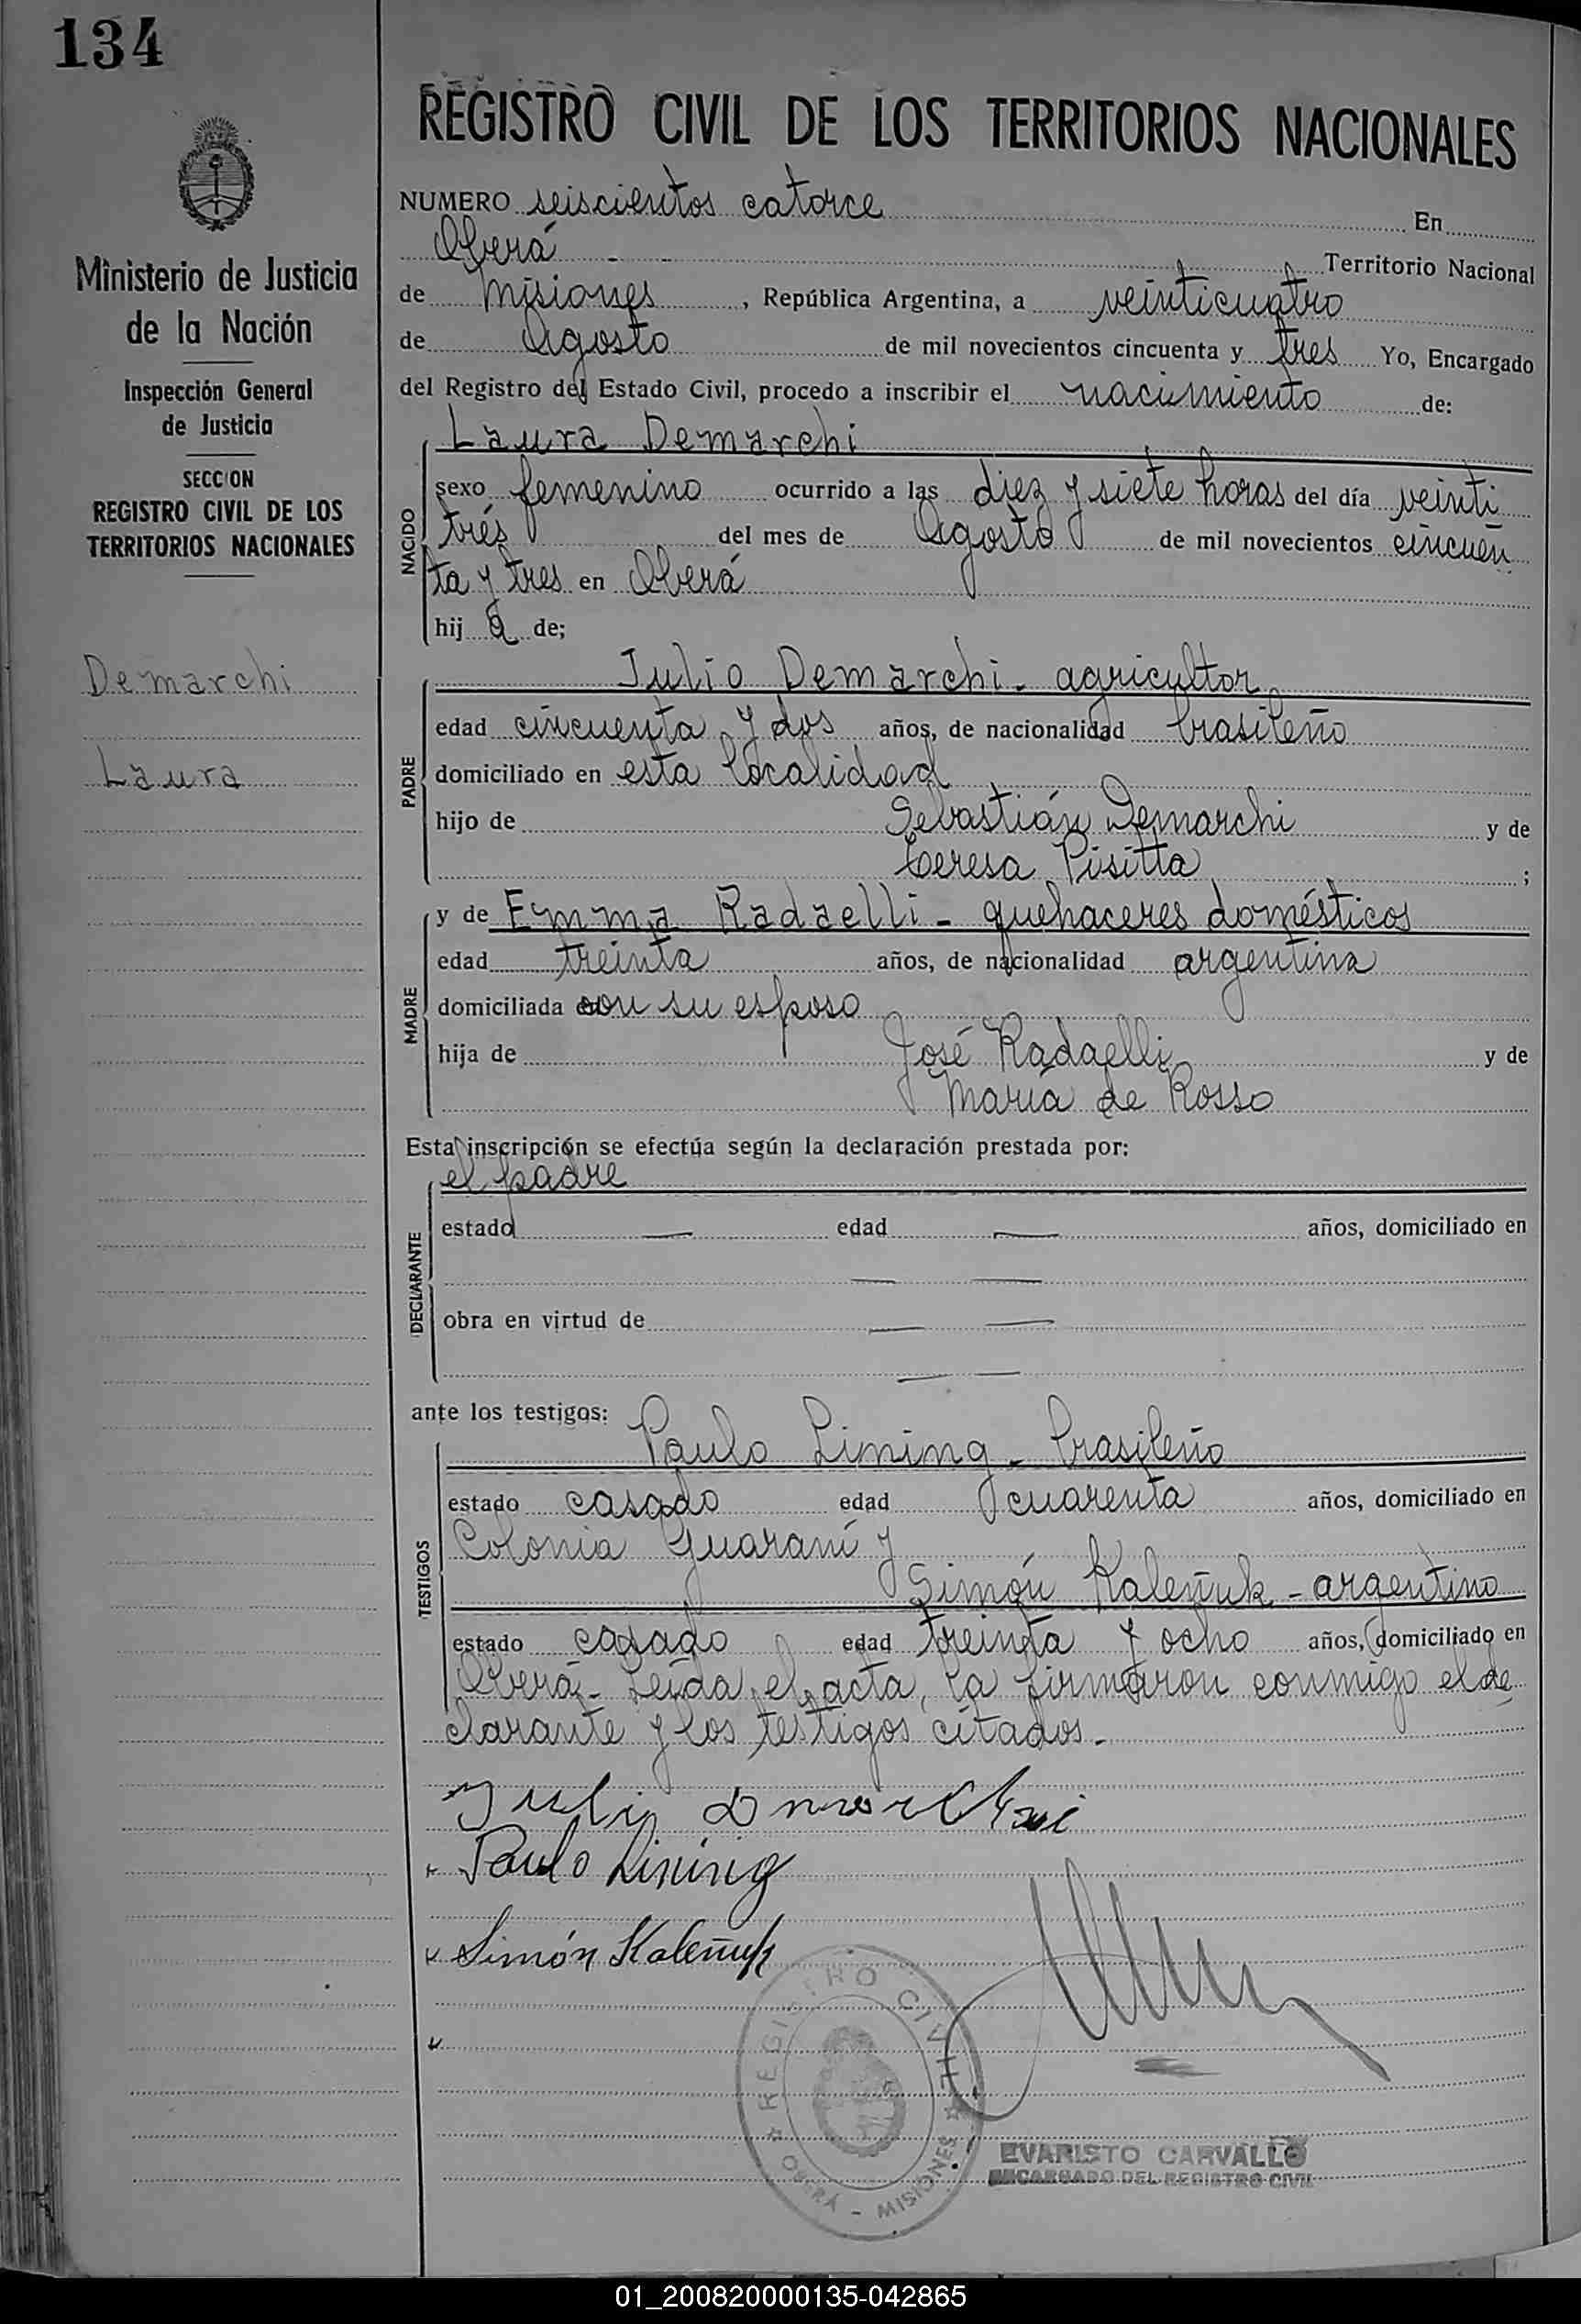 134
REGISTRO CIVIL DE LOS TERRITORIOS NACIONALES
Ministerio de Justicia
de la Nación
Inspección General
de Justicia
SECCION
REGISTRO CIVIL DE LOS
TERRITORIOS NACIONALES
Demarchi
Laura
NUMERO seiscientos catorce En
Oberá - Territorio Nacional
de Misiones, República Argentina, a veinticuatro
de Agosto de mil novecientos cincuenta y tres Yo, Encargado
del Registro del Estado Civil, procedo a inscribir el nacimiento de:
Laura Demarchi
NACIDO
sexo femenino ocurrido a las diez y siete horas del día veinti
trés del mes de Agosto de mil novecientos cincuen
ta y tres en Oberá
hij a de;
PADRE
Julio Demarchi - agricultor
edad cincuenta y dos años, de nacionalidad brasileño
domiciliado en esta localidad
hijo de Sebastián Demarchi y de
Teresa Pisitta ;
MADRE
y de Emma Radaelli - quehaceres domésticos
edad treinta años, de nacionalidad argentina
domiciliada con su esposo
hija de José Radaelli y de
María de Rosso
Esta inscripción se efectúa según la declaración prestada por:
el padre
DECLARANTE
estado — edad — años, domiciliado en
— —
obra en virtud de — —
— —
ante los testigos:
TESTIGOS
Paulo Lining - brasileño
estado casado edad cuarenta años, domiciliado en
Colonia Guaraní y
Simón Kaleñuk - argentino
estado casado edad treinta y ocho años, domiciliado en
Oberá - Leída el acta, la firmaron conmigo el de
clarante y los testigos citados.-
Paulo Lining
Simón Kaleñuk
REGISTRO CIVIL
OBERÁ - MISIONES
EVARISTO CARVALLO
ENCARGADO DEL REGISTRO CIVIL
01_200820000135-042865